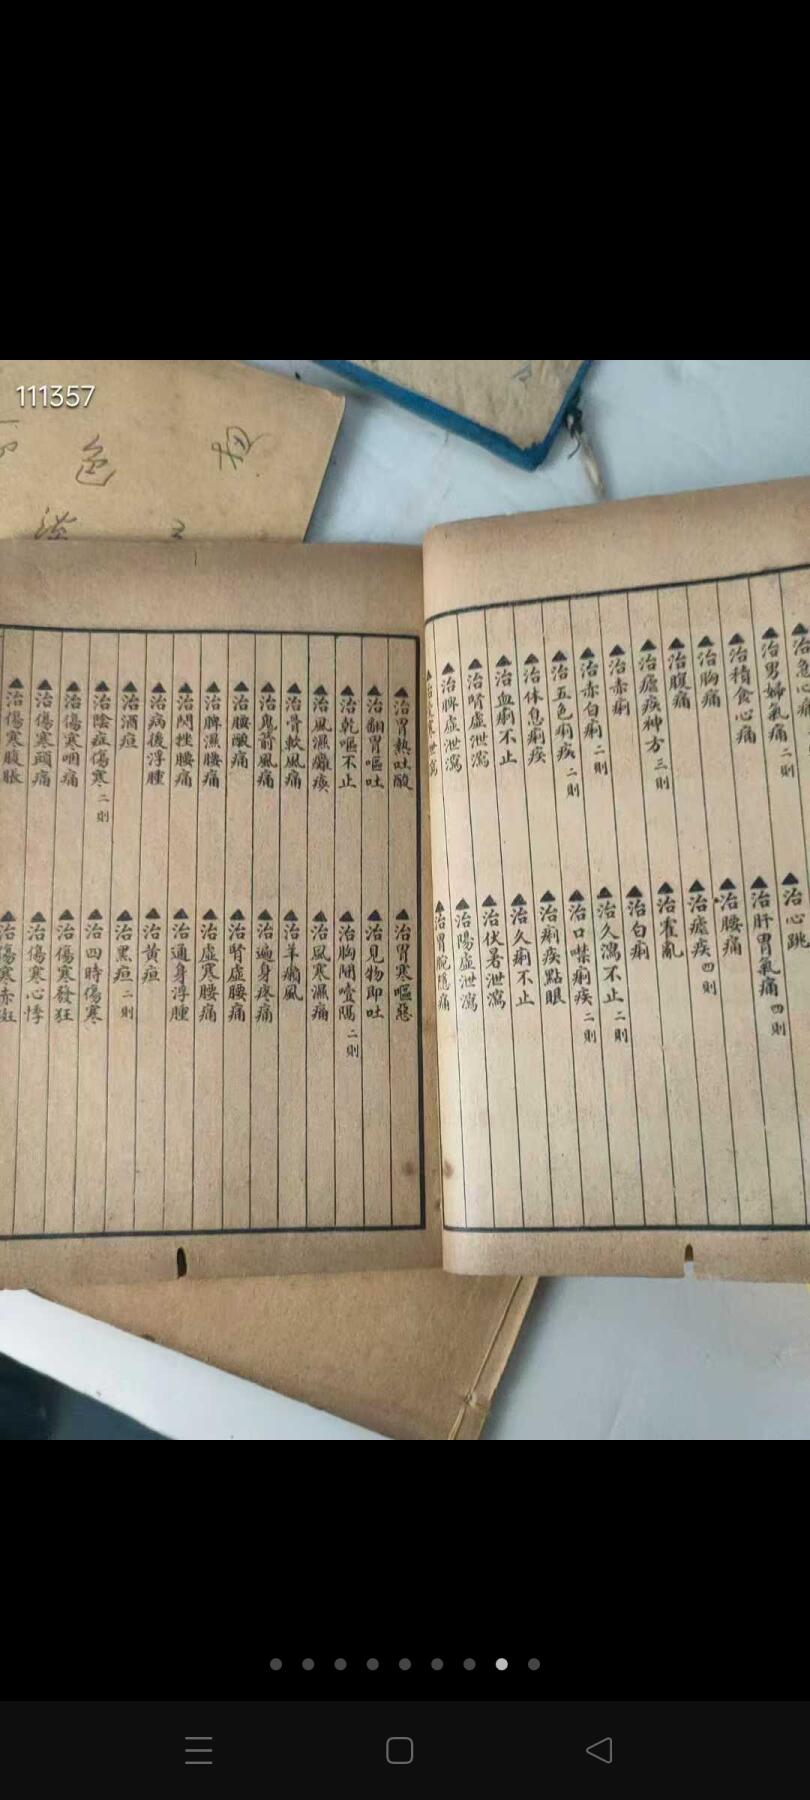 111357
治急心痛
治心跳
治男婦氣痛二則
治肝胃氣痛四則
治積食心痛
治腰痛
治胸痛
治瘧疾四則
治腹痛
治霍亂
治瘧疾神方三則
治白痢
治赤痢
治久瀉不止二則
治赤白痢二則
治口噤痢疾二則
治五色痢疾二則
治痢疾點眼
治休息痢疾
治久痢不止
治血痢不止
治伏暑泄瀉
治腎虛泄瀉
治陽虛泄瀉
治脾虛泄瀉
治胃脘隱痛
治胃熱吐酸
治胃寒嘔惡
治翻胃嘔吐
治見物即吐
治乾嘔不止
治胸悶噎隔二則
治風濕癱瘓
治風寒濕痛
治骨軟風痛
治羊癇風
治鬼箭風痛
治遍身疼痛
治腰酸痛
治腎虛腰痛
治脾濕腰痛
治虛寒腰痛
治閃挫腰痛
治通身浮腫
治病後浮腫
治黃疸
治酒疸
治黑疸二則
治陰症傷寒二則
治四時傷寒
治傷寒咽痛
治傷寒發狂
治傷寒頭痛
治傷寒心悸
治傷寒腹脹
治傷寒赤斑